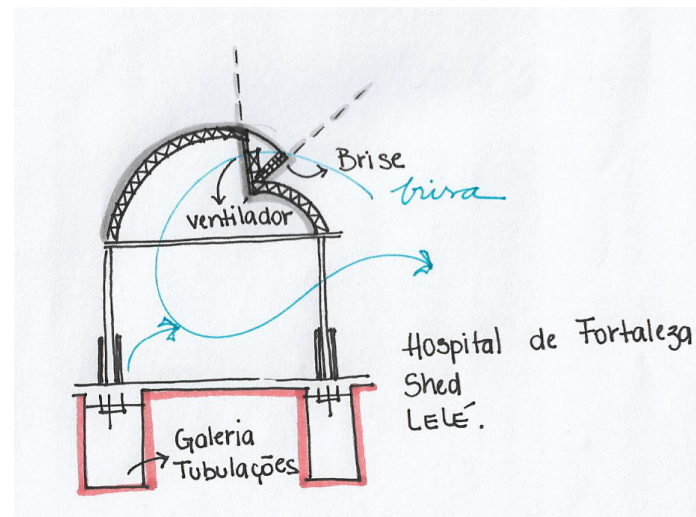 Brise
brisa
ventilador
Hospital de Fortaleza
Shed
LELÉ.
Galeria
Tubulações